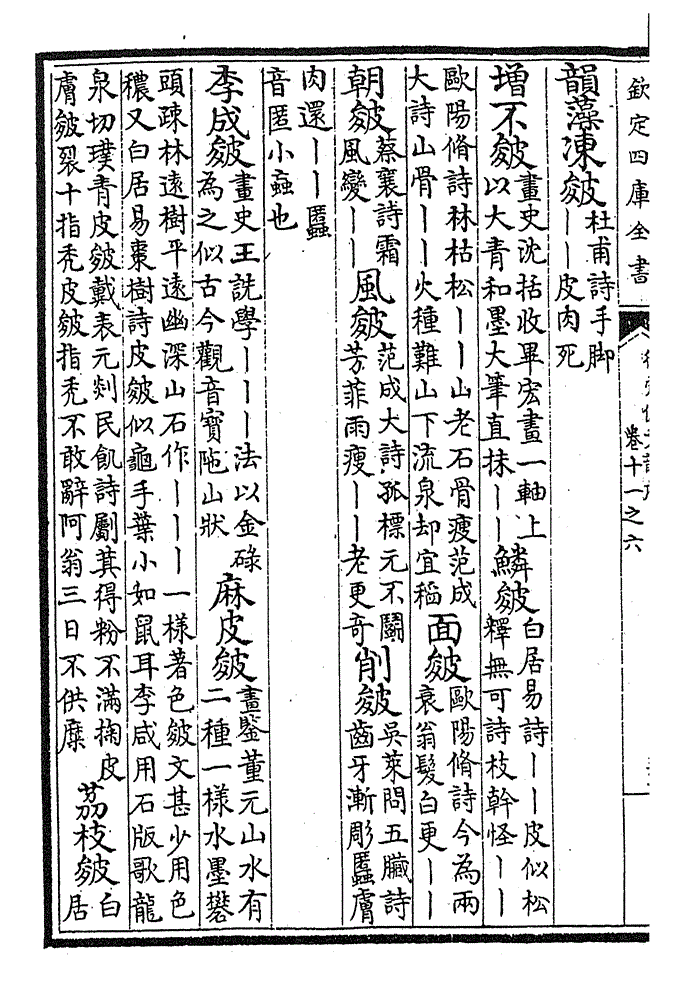 欽定四庫全書
卷十一之六
韻藻凍皴
杜甫詩手脚
丨丨皮肉死
增不皴
畫史沈括收畢宏畫一軸上
以大青和墨大筆直抹丨丨
鱗皴
白居易詩丨丨皮似松
釋無可詩枝幹怪丨丨
歐陽脩詩林枯松丨丨山老石骨瘦范成
大詩山骨丨丨火種難山下流泉却宜稻
面皴
歐陽脩詩今為兩
衰翁髮白更丨丨
朝皴
蔡襄詩霜
風變丨丨
風皴
范成大詩孤標元不鬭
芳菲雨瘦丨丨老更奇
削皴
吳萊問五臟詩
齒牙漸彫䘌膚
肉還丨丨䘌
音匿小蟲也
李成皴
畫史王詵學丨丨丨法以金碌
為之似古今觀音寶陁山狀
麻皮皴
畫鑒董元山水有
二種一樣水墨礬
頭疎林遠樹平遠幽深山石作丨丨丨一樣著色皴文甚少用色
穠又白居易棗樹詩皮皴似龜手葉小如鼠耳李咸用石版歌龍
泉切璞青皮皴戴表元剡民飢詩劚萁得粉不滿掬皮
膚皴裂十指秃皮皴指秃不敢辭阿翁三日不供糜
荔枝皴
白
居